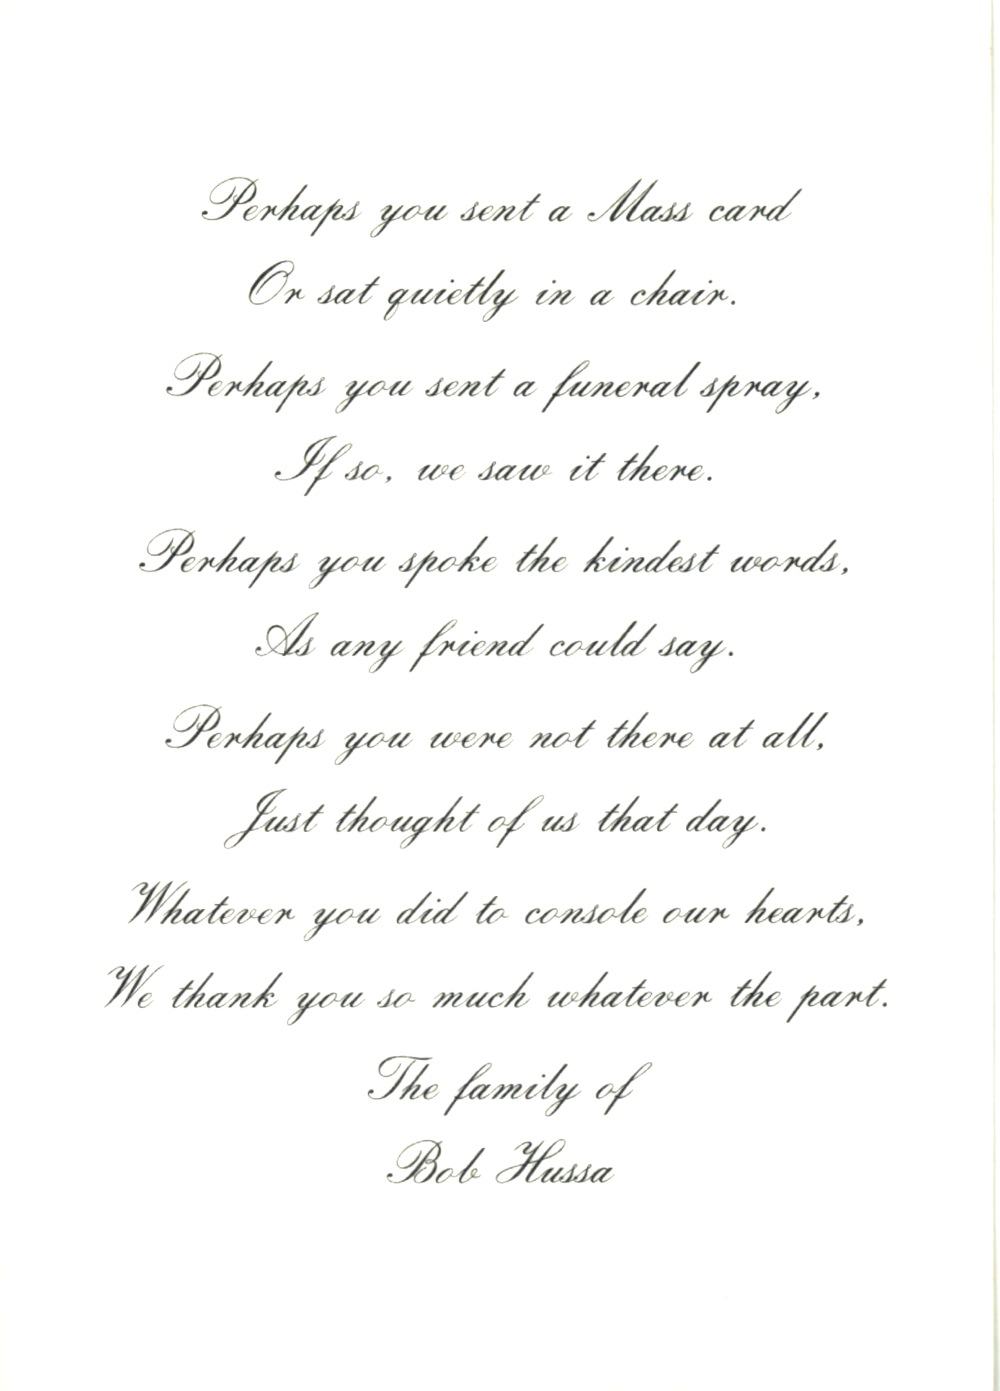 Perhaps you sent a Mass card
Or sat quietly in a chair.
Perhaps you sent a funeral spray,
If so, we saw it there.
Perhaps you spoke the kindest words,
As any friend could say.
Perhaps you were not there at all,
Just thought of us that day.
Whatever you did to console our hearts,
We thank you so much whatever the part.
The family of
Bob Hussa